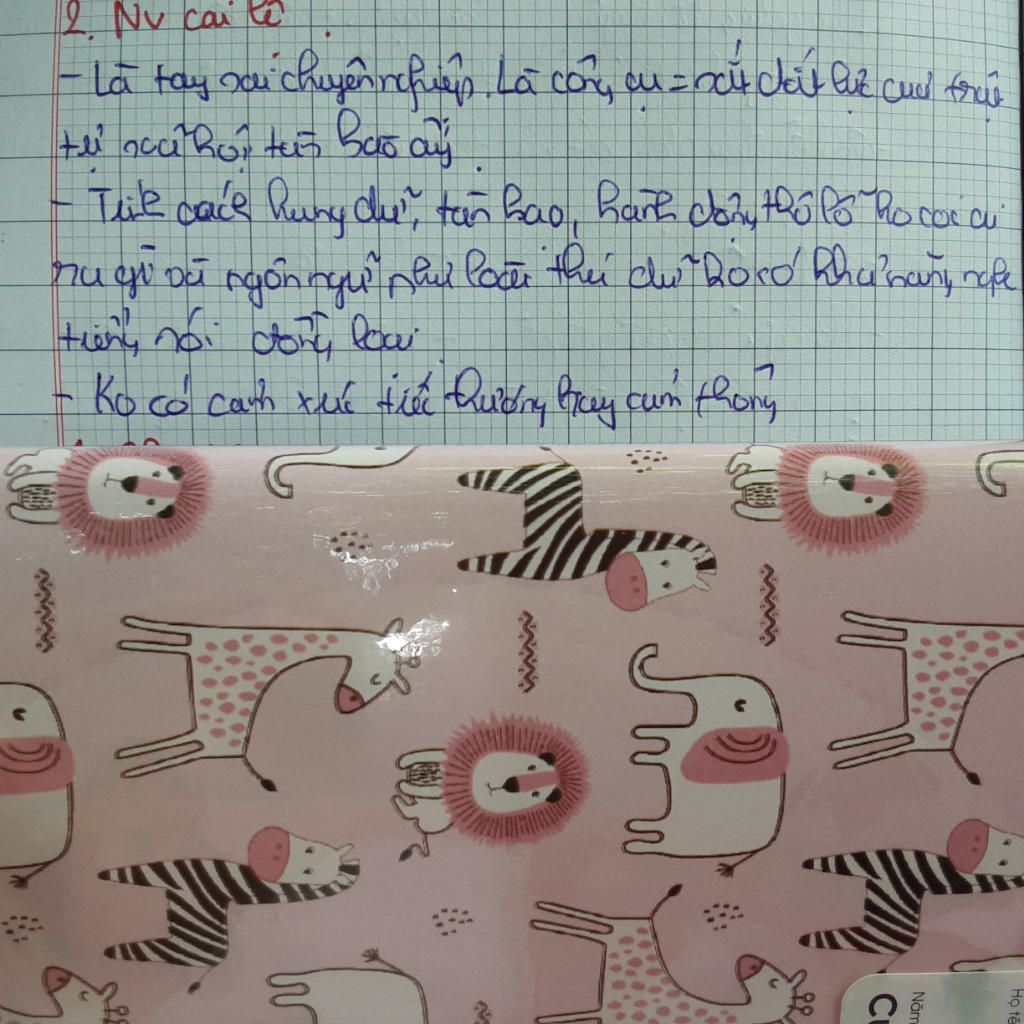 2. Nv cai lệ
- Là tay sai chuyên nghiệp. Là công cụ = sắt đắt lực của trật
tự xã hội tàn bạo ấy.
- Tính cách hung dữ, tàn bạo, hành động thô lỗ ko coi ai
ra gì và ngôn ngữ như loài thú dữ ko có khả năng nghe
tiếng nói đồng loại
- Ko có cảm xúc tiếc thương hay cảm thông
Họ tê
Năm